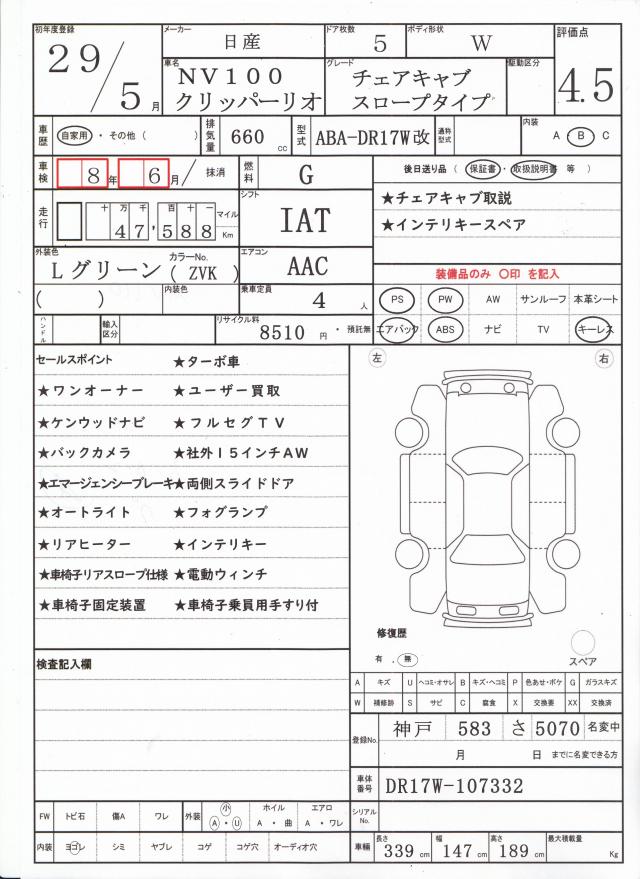 初年度登録
29/5月
メーカー
日産
ドア枚数
5
ボディ形状
W
評価点
4.5
車名
NV100
クリッパーリオ
グレード
チェアキャブ
スロープタイプ
駆動区分
車歴
自家用 ・ その他 ( )
排気量
660 cc
型式
ABA-DR17W改
通称型式
内装
A ・ B ・ C
車検
8年 6月/ 抹消
燃料
G
後日送り品 ( 保証書 ・ 取扱説明書 等 )
走行
十 万 千 百 十 一
47,588
マイル
Km
シフト
IAT
★チェアキャブ取説
★インテリキースペア
外装色
Lグリーン
カラーNo.
( ZVK )
エアコン
AAC
装備品のみ ○印 を記入
( )
内装色
乗車定員
4 人
PS PW AW サンルーフ 本革シート
ハンドル
輸入区分
リサイクル料
8510 円 ・ 預託無
エアバック ABS ナビ TV キーレス
セールスポイント ★ターボ車
★ワンオーナー ★ユーザー買取
★ケンウッドナビ ★フルセグTV
★バックカメラ ★社外15インチAW
★エマージェンシーブレーキ ★両側スライドドア
★オートライト ★フォグランプ
★リアヒーター ★インテリキー
★車椅子リアスロープ仕様 ★電動ウィンチ
★車椅子固定装置 ★車椅子乗員用手すり付
左 右
修復歴
有 . 無
スペア
検査記入欄
A キズ U ヘコミ・オサレ B キズ・ヘコミ P 色あせ・ボケ G ガラスキズ
W 補修跡 S サビ C 腐食 X 交換要 XX 交換済
登録No.
神戸 583 さ 5070 名変中
月 日 までに名変できる方
車体番号
DR17W-107332
シリアルNo.
FW トビ石 傷A ワレ
外装 小 A ・ U
ホイル
A ・ 曲
エアロ
A ・ ワレ
内装 ヨゴレ シミ ヤブレ コゲ コゲ穴 オーディオ穴
車輛
長さ
339 cm
幅
147 cm
高さ
189 cm
最大積載量
Kg